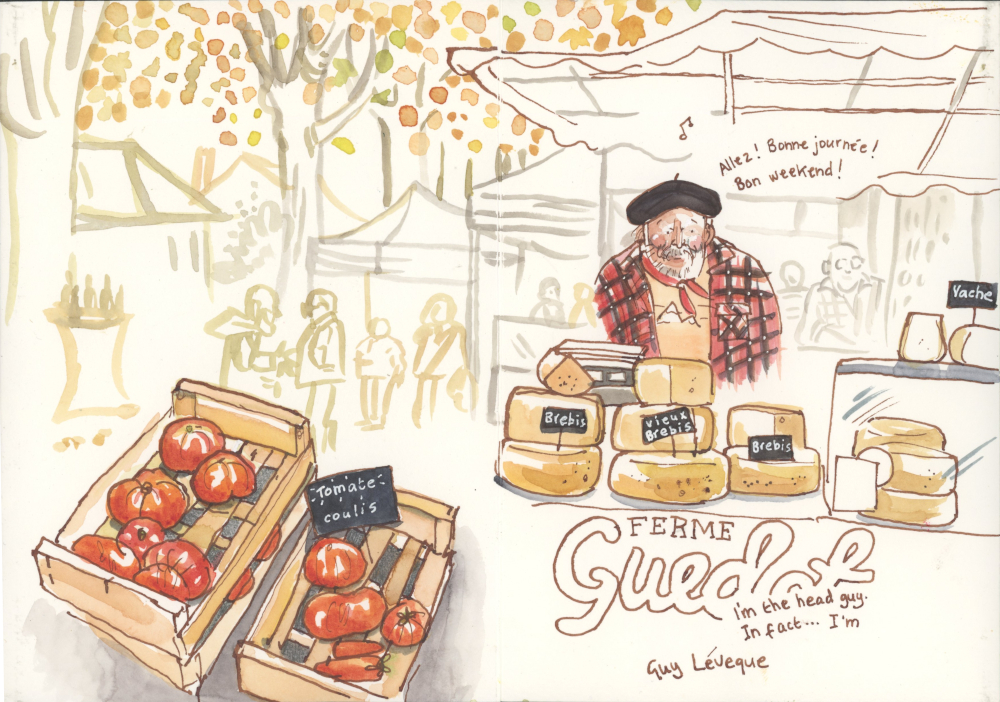 Allez! Bonne journée!
Bon weekend!
Vache
Brebis
vieux
Brebis
Brebis
Tomate
coulis
FERME
I'm the head guy.
In fact... I'm
Guy Lévêque